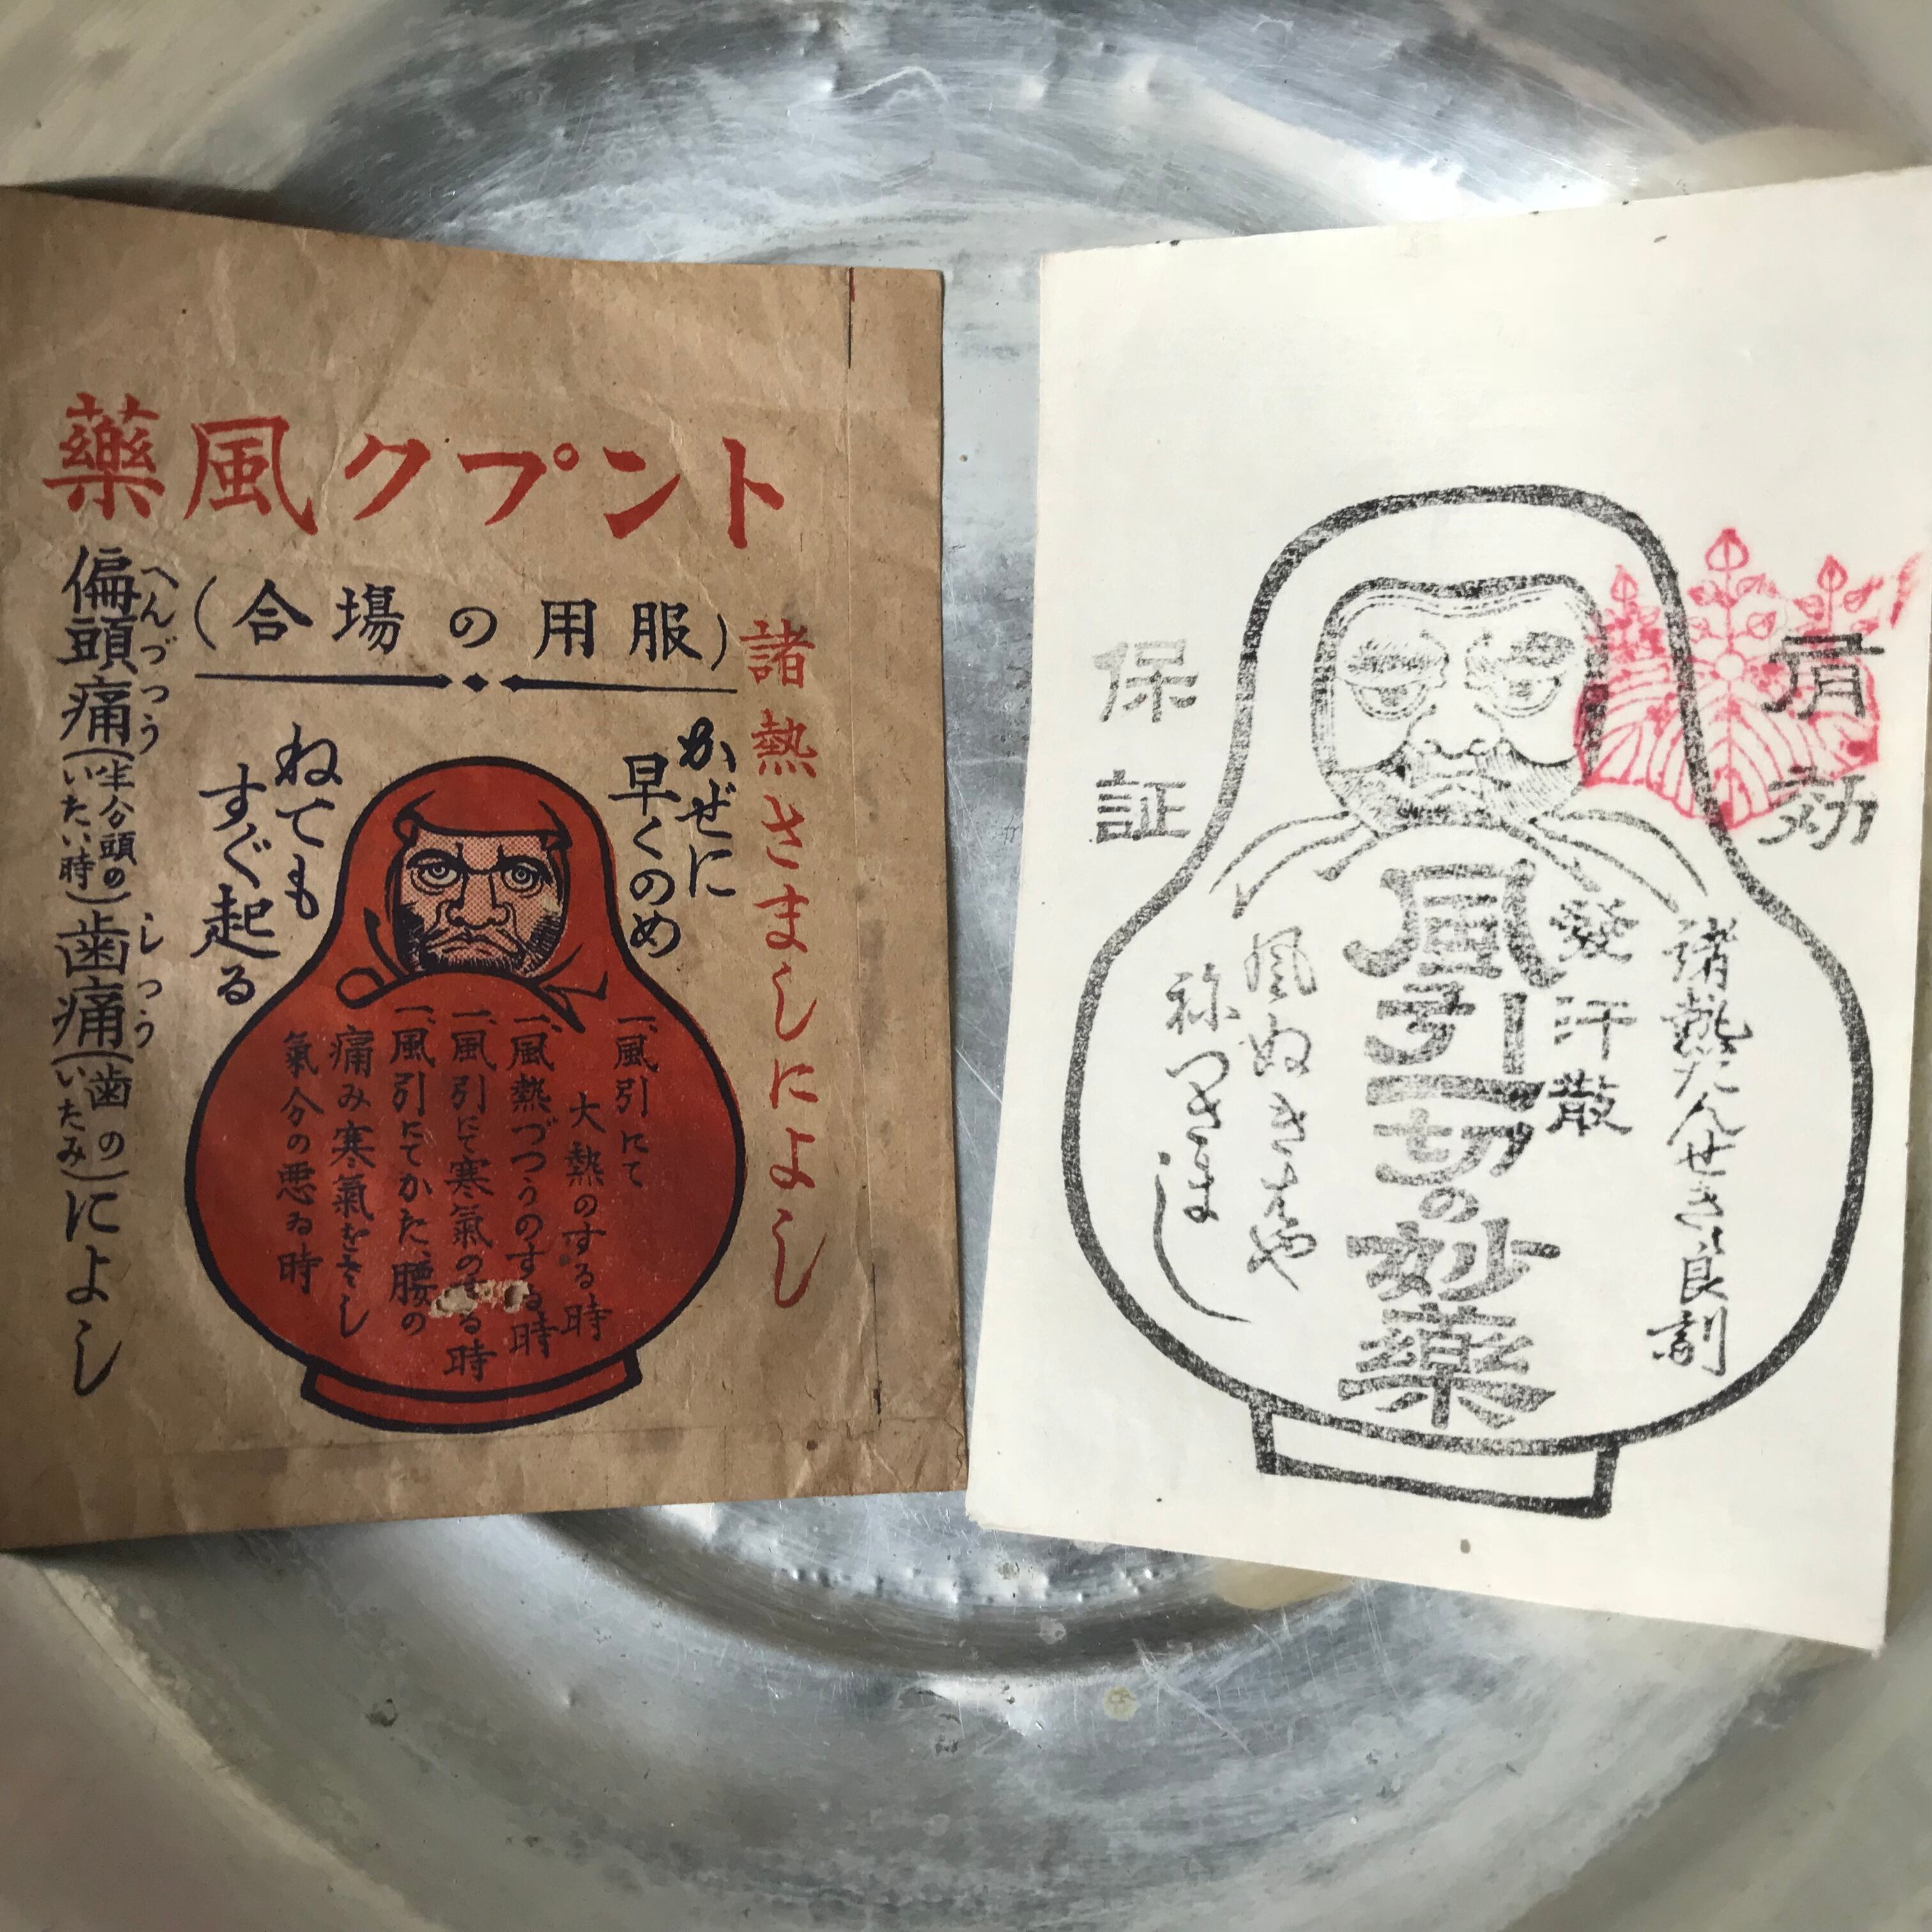 トンプク風藥
(服用の場合)
諸熱さましによし
かぜに
早くのめ
ねても
すぐ起る
一、風引にて
大熱のする時
一、風熱づつうのする時
一、風引にて寒氣のする時
一、風引にてかた、腰の
痛み寒氣を
氣分の悪ゐ時
へんづつう しつう
偏頭痛(半分頭のいたい時)歯痛(歯のいたみ)によし
有効
保証
諸熱たんせき良剤
發汗散
風引一切の妙藥
風ぬきはや
祢つさまし